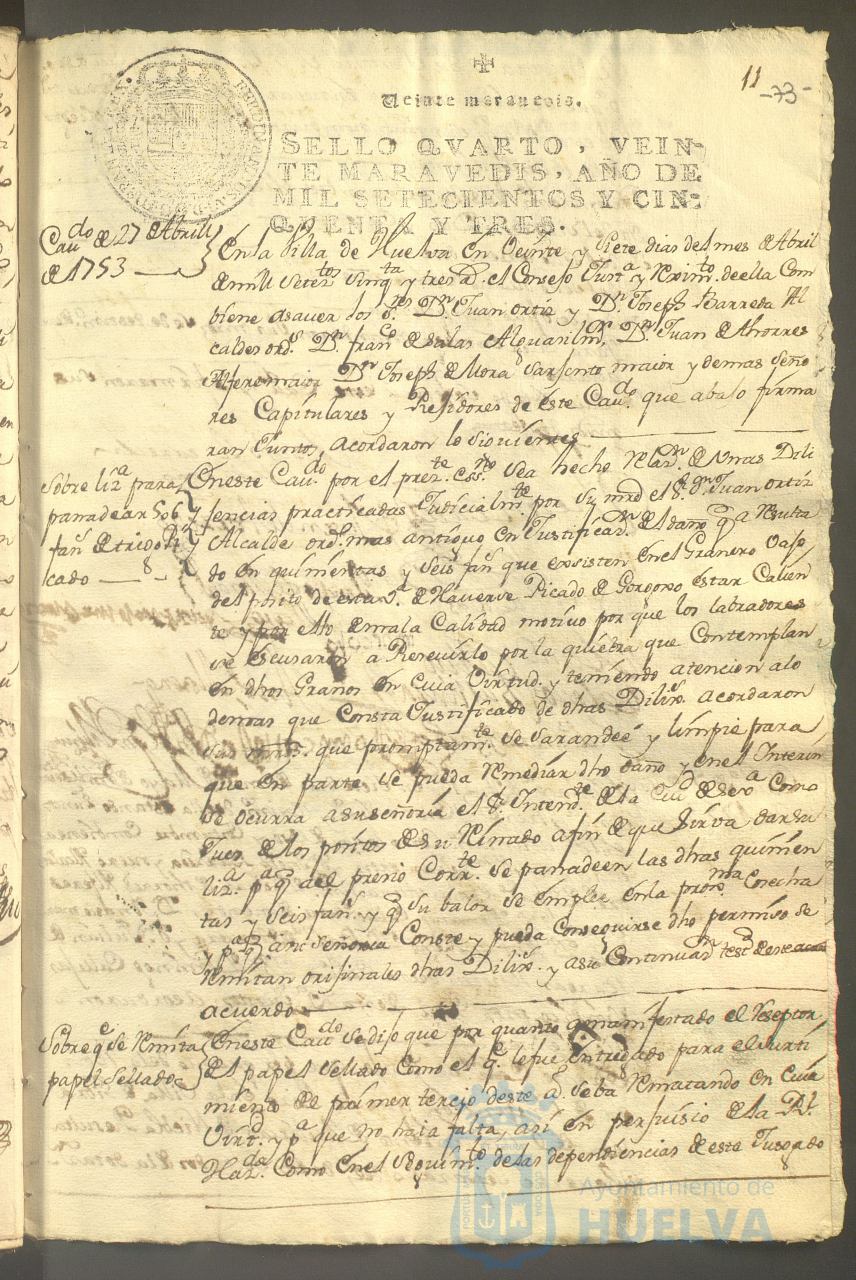 11
-73-
Veinte maravedis.
SELLO QVARTO, VEIN-
TE MARAVEDIS, AÑO DE
MIL SETECIENTOS Y CIN-
QUENTA Y TRES.
Caudo de 27 de Abrill
de 1753
En la Villa de Huelva en Veinte y Siete dias del mes de Abril
de mill Setetos Sinqta y tres as. el Consejo Justa y Reximto de ella Com
biene a saver los Sres Dn Juan ortiz y Dn Joseph Barreda Al
caldes ords. Dn Franco de Salas Alguacil mr. Dn Juan de Thorres
Alferemaior Dn Joseph de Mora Sarjento maior y demas Seño
res Capitulares y Rejidores de este Caudo. que abajo firma
ran Juntos, acordaron lo siguiente
Sobre liza para
panadear 506
fans de trigo Pi
cado
En este Caudo por el preste Essno se a hecho Relazn de Unas Dili
jencias practicadas Judicialmte por Su mrd el Sr. Dn Juan ortiz
Alcalde ordo mas antiguo en Justificazn del daño q a Resulta
do en quinientas y seis fans que exsisten en el Granero Vajo
del posito de esta Va. de Haverse Picado de Gorgoxo estar Calien
te y por ello de mala Calidad motivo por que los labradores
se escusaron a Resevirlo por la quiebra que Contemplan
en dhos Granos en Cuia Virtud. y teniendo atencion a lo
demas que Consta Justificado de dhas Dilixs. acordaron
Sus mrds. que promptamte. se sarandeé y limpie para
que en parte se pueda Remediar dho daño y en el Interin
se ocurra a su señoria el Sr. Intendte de la Ciud de Seva Como
Juez de los positos de su Reinado a fin de que Sirva dar su
liza pa q al presio Corrte se panadeen las dhas quinien
tas y seis fans y q su balor se emplee en la proxma Cosecha
y pa q a su señoria Conste y pueda Conseguirse dho permiso se
Remitan orijinales dhas Dilixs. y a su Continuazn testo de este
acuerdo
Sobre qe se Remita
papel Sellado
En este Caudo se dijo que por quanto a manifestado el Reseptor
del papel sellado Como el q. le fue entregado para el Surti
miento de primer tercio deste ao. se ba Rematando en Cuia
Virtd. y pa que no haia falta, asi en perjuisio de la Rl.
Hazda. Como en el Seguimto. de las dependiencias de este Jusgado
Ayuntamiento de
HUELVA